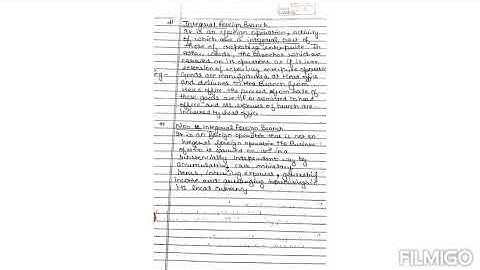 Integral Foreign Branch
It is an foreign operation, activity
of which are a integral part of
those of reporting enterprise. In
other words, the branches which are
carried on its operators as if it is an
extension of reporting enterprise operation
Eg:- Goods are manufactured at Head office
and delivered to the Branch from
Head office, the proceed from sale of
these goods are remitted to head
office and all expenses of branch are
incurred by head office
Non Integral Foreign Branch
It is an foreign operation that is not an
Integral foreign operation the Business
of is carried on in a
substancially independent way by
accumulating cash, monetary
items, incurring expenses, generating
income and arranging borrowings in
its local currency
FILMIGO